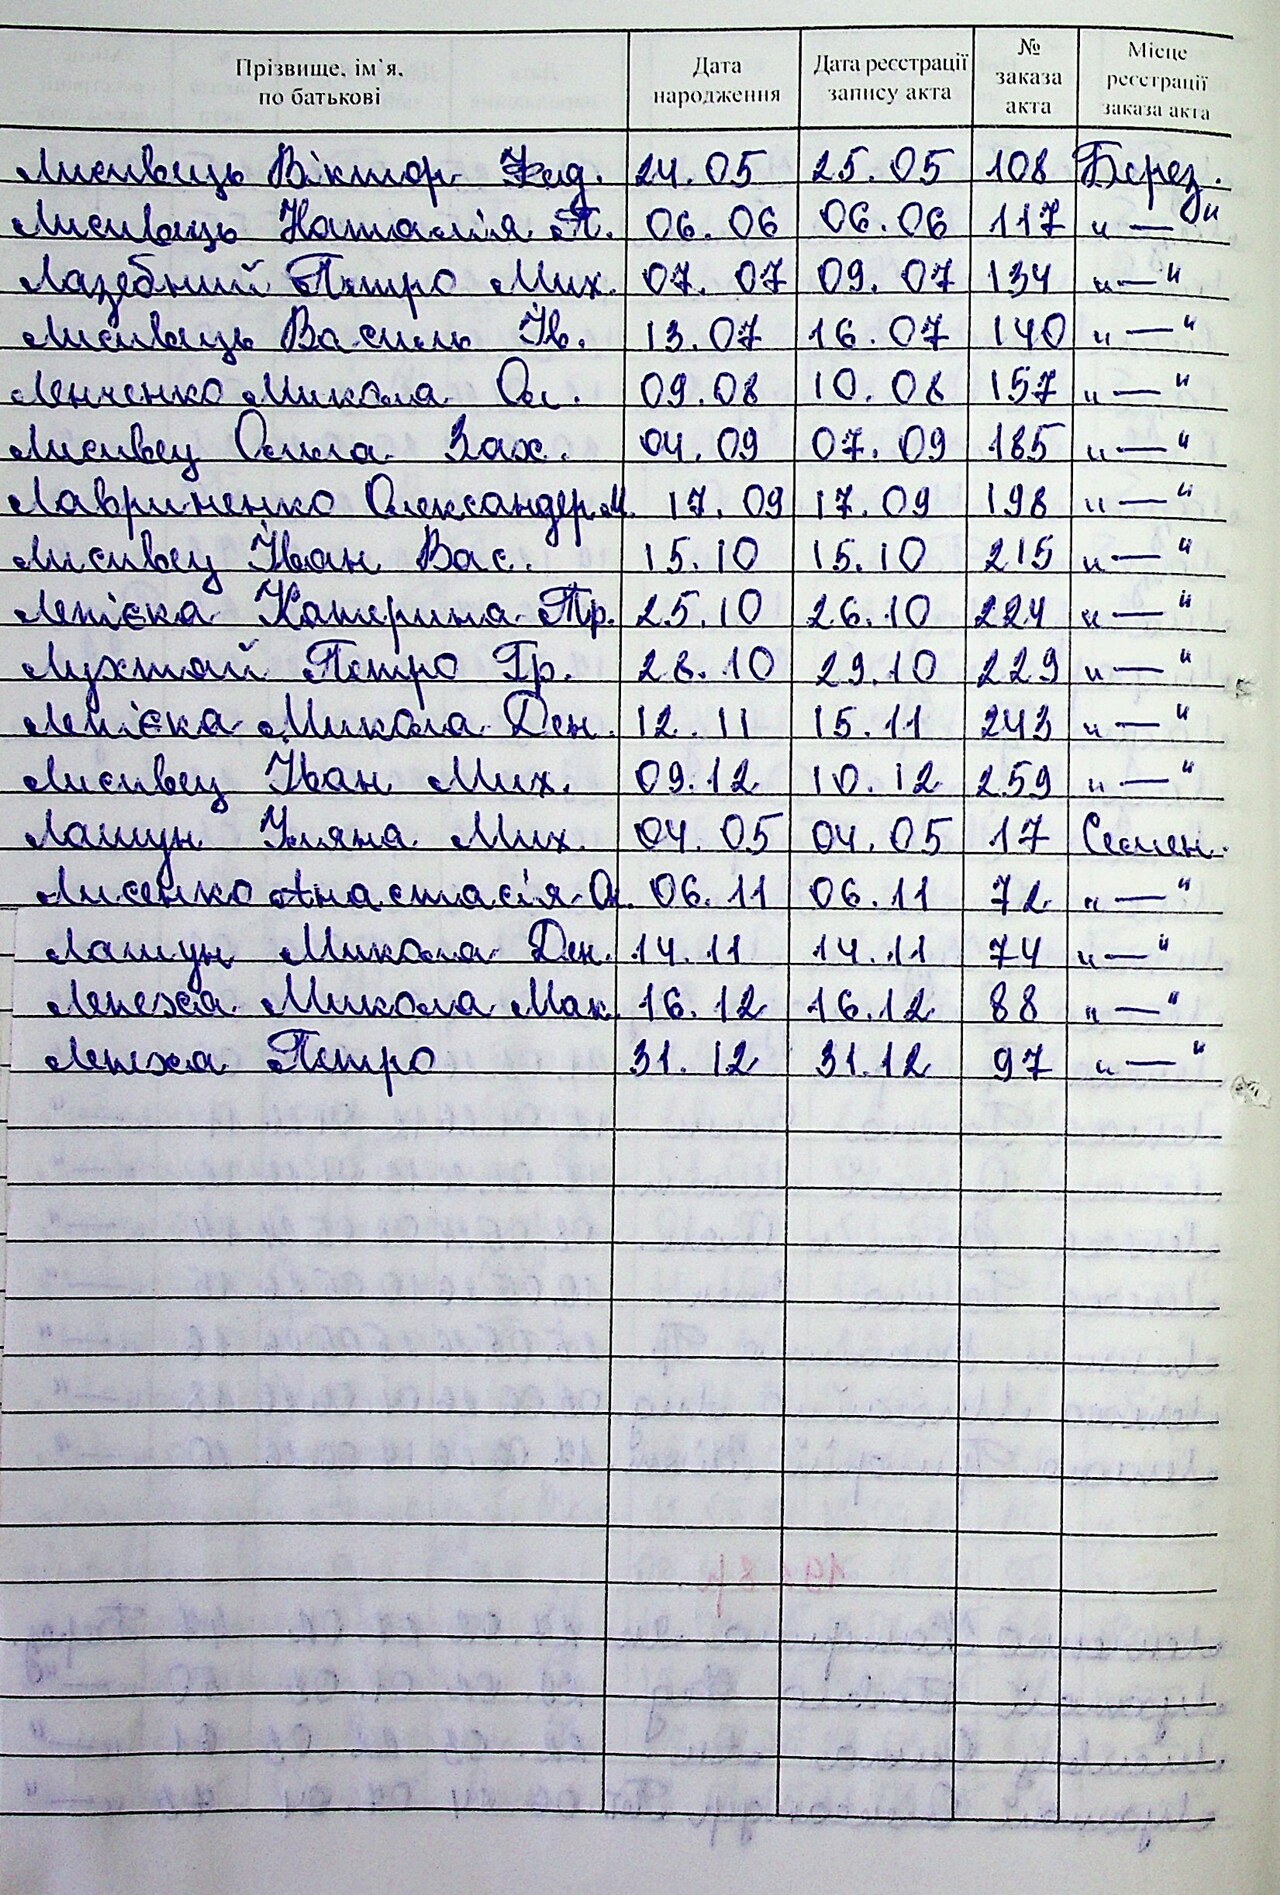 Прізвище, ім'я, по батькові Дата народження Дата реєстрації запису акта № заказа акта Місце реєстрації заказа акта
Лисивець Віктор Фед. 24.05 25.05 108 Берез.
Лисивець Наталія П. 06.06 06.06 117 " — "
Лазебний Петро Мих. 07.07 09.07 134 " — "
Лисивець Василь Ів. 13.07 16.07 140 " — "
Ленченко Микола Ол. 09.08 10.08 157 " — "
Лисивец Ольга Зах. 04.09 07.09 185 " — "
Лавриненко Олександер М. 17.09 17.09 198 " — "
Лисивец Іван Вас. 15.10 15.10 215 " — "
Лепієка Катерина Пр. 25.10 26.10 224 " — "
Лухтай Петро Гр. 28.10 29.10 229 " — "
Лепієка Микола Ден. 12.11 15.11 243 " — "
Лисивец Іван Мих. 09.12 10.12 259 " — "
Лашун Уляна Мих. 04.05 04.05 17 Семен.
Лисенко Анастасія Ол. 06.11 06.11 72 " — "
Лашун Микола Ден. 14.11 14.11 74 " — "
Лепеха Микола Мак. 16.12 16.12 88 " — "
Лепеха Петро 31.12 31.12 97 " — "